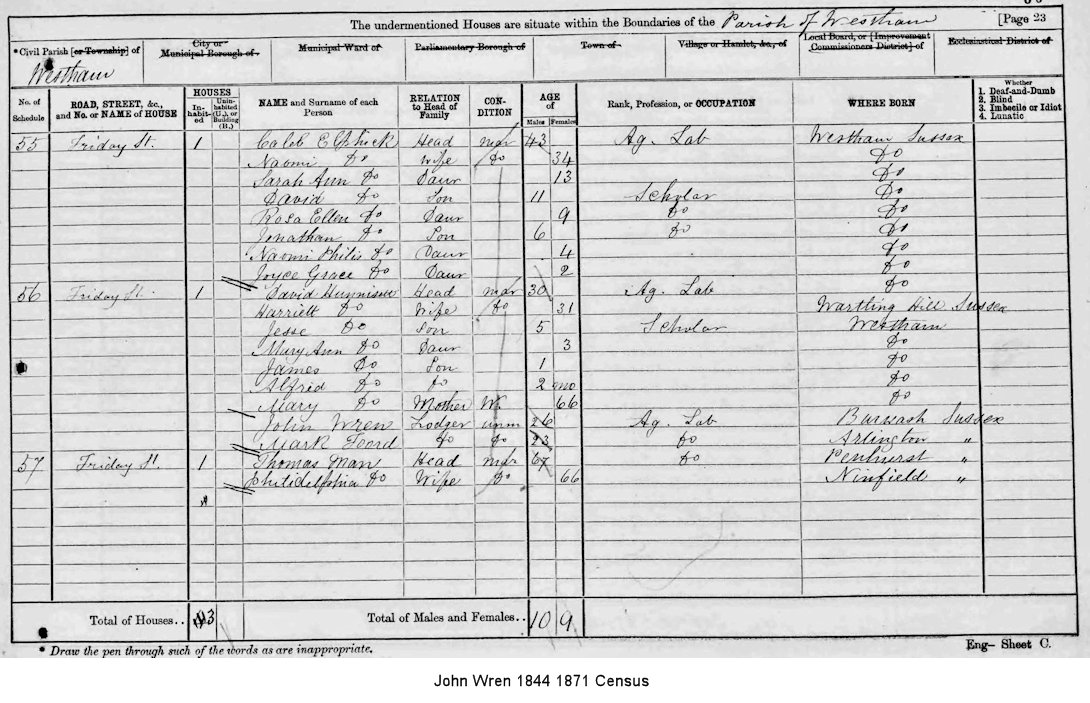 The undermentioned Houses are situate within the Boundaries of the Parish of Westham [Page 23
*Civil Parish [or Township] of City or Municipal Borough of Municipal Ward of Parliamentary Borough of Town of Village or Hamlet, &c., of Local Board, or [Improvement Commissioners District] of Ecclesiastical District of
Westham
No. of Schedule ROAD, STREET, &c., and No. or NAME of HOUSE HOUSES Inhabited Uninhabited (U.), or Building (B.) NAME and Surname of each Person RELATION to Head of Family CONDITION AGE of Males Females Rank, Profession, or OCCUPATION WHERE BORN Whether 1. Deaf-and-Dumb 2. Blind 3. Imbecile or Idiot 4. Lunatic
55 Friday St. 1 Caleb Elphick Head mar 43 Ag. Lab Westham Sussex
Naomi Do Wife Do 34 Do
Sarah Ann Do Daur 13 Do
David Do Son 11 Scholar Do
Rosa Ellen Do Daur 9 Do Do
Jonathan Do Son 6 Do Do
Naomi Philis Do Daur 4 Do
Joyce Grace Do Daur 2 Do
56 Friday St. 1 David Hunnisett Head mar 30 Ag. Lab Do
Harriett Do Wife Do 31 Wartling Hill Sussex
Jesse Do Son 5 Scholar Westham
Mary Ann Do Daur 3 Do
James Do Son 1 Do
Alfred Do Do 2 mo Do
Mary Do Mother W. 66 Do
John Wren Lodger unm 26 Ag. Lab Burwash Sussex
Mark Foord Do Do 23 Do Arlington "
57 Friday St. 1 Thomas Man Head mar 67 Do Penhurst "
Philidelphia Do Wife Do 66 Ninfield "
Total of Houses.. 3 Total of Males and Females.. 10 9
* Draw the pen through such of the words as are inappropriate. Eng- Sheet C.
John Wren 1844 1871 Census